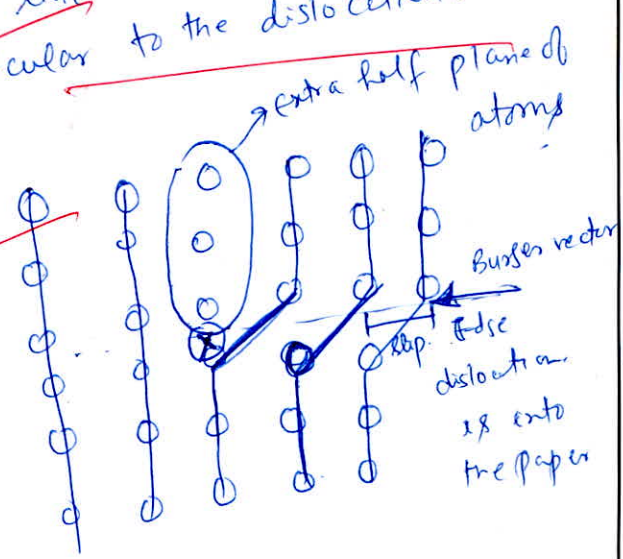 cular to the dislocation
extra half plane of
atoms
Burger vector
slip. Edge
dislocation
is into
the paper